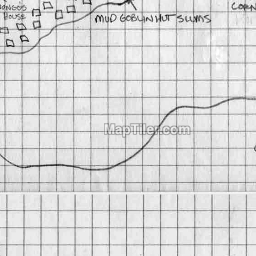 HOUSE
MUD GOBLIN HUT SLUMS
MapTiler.com